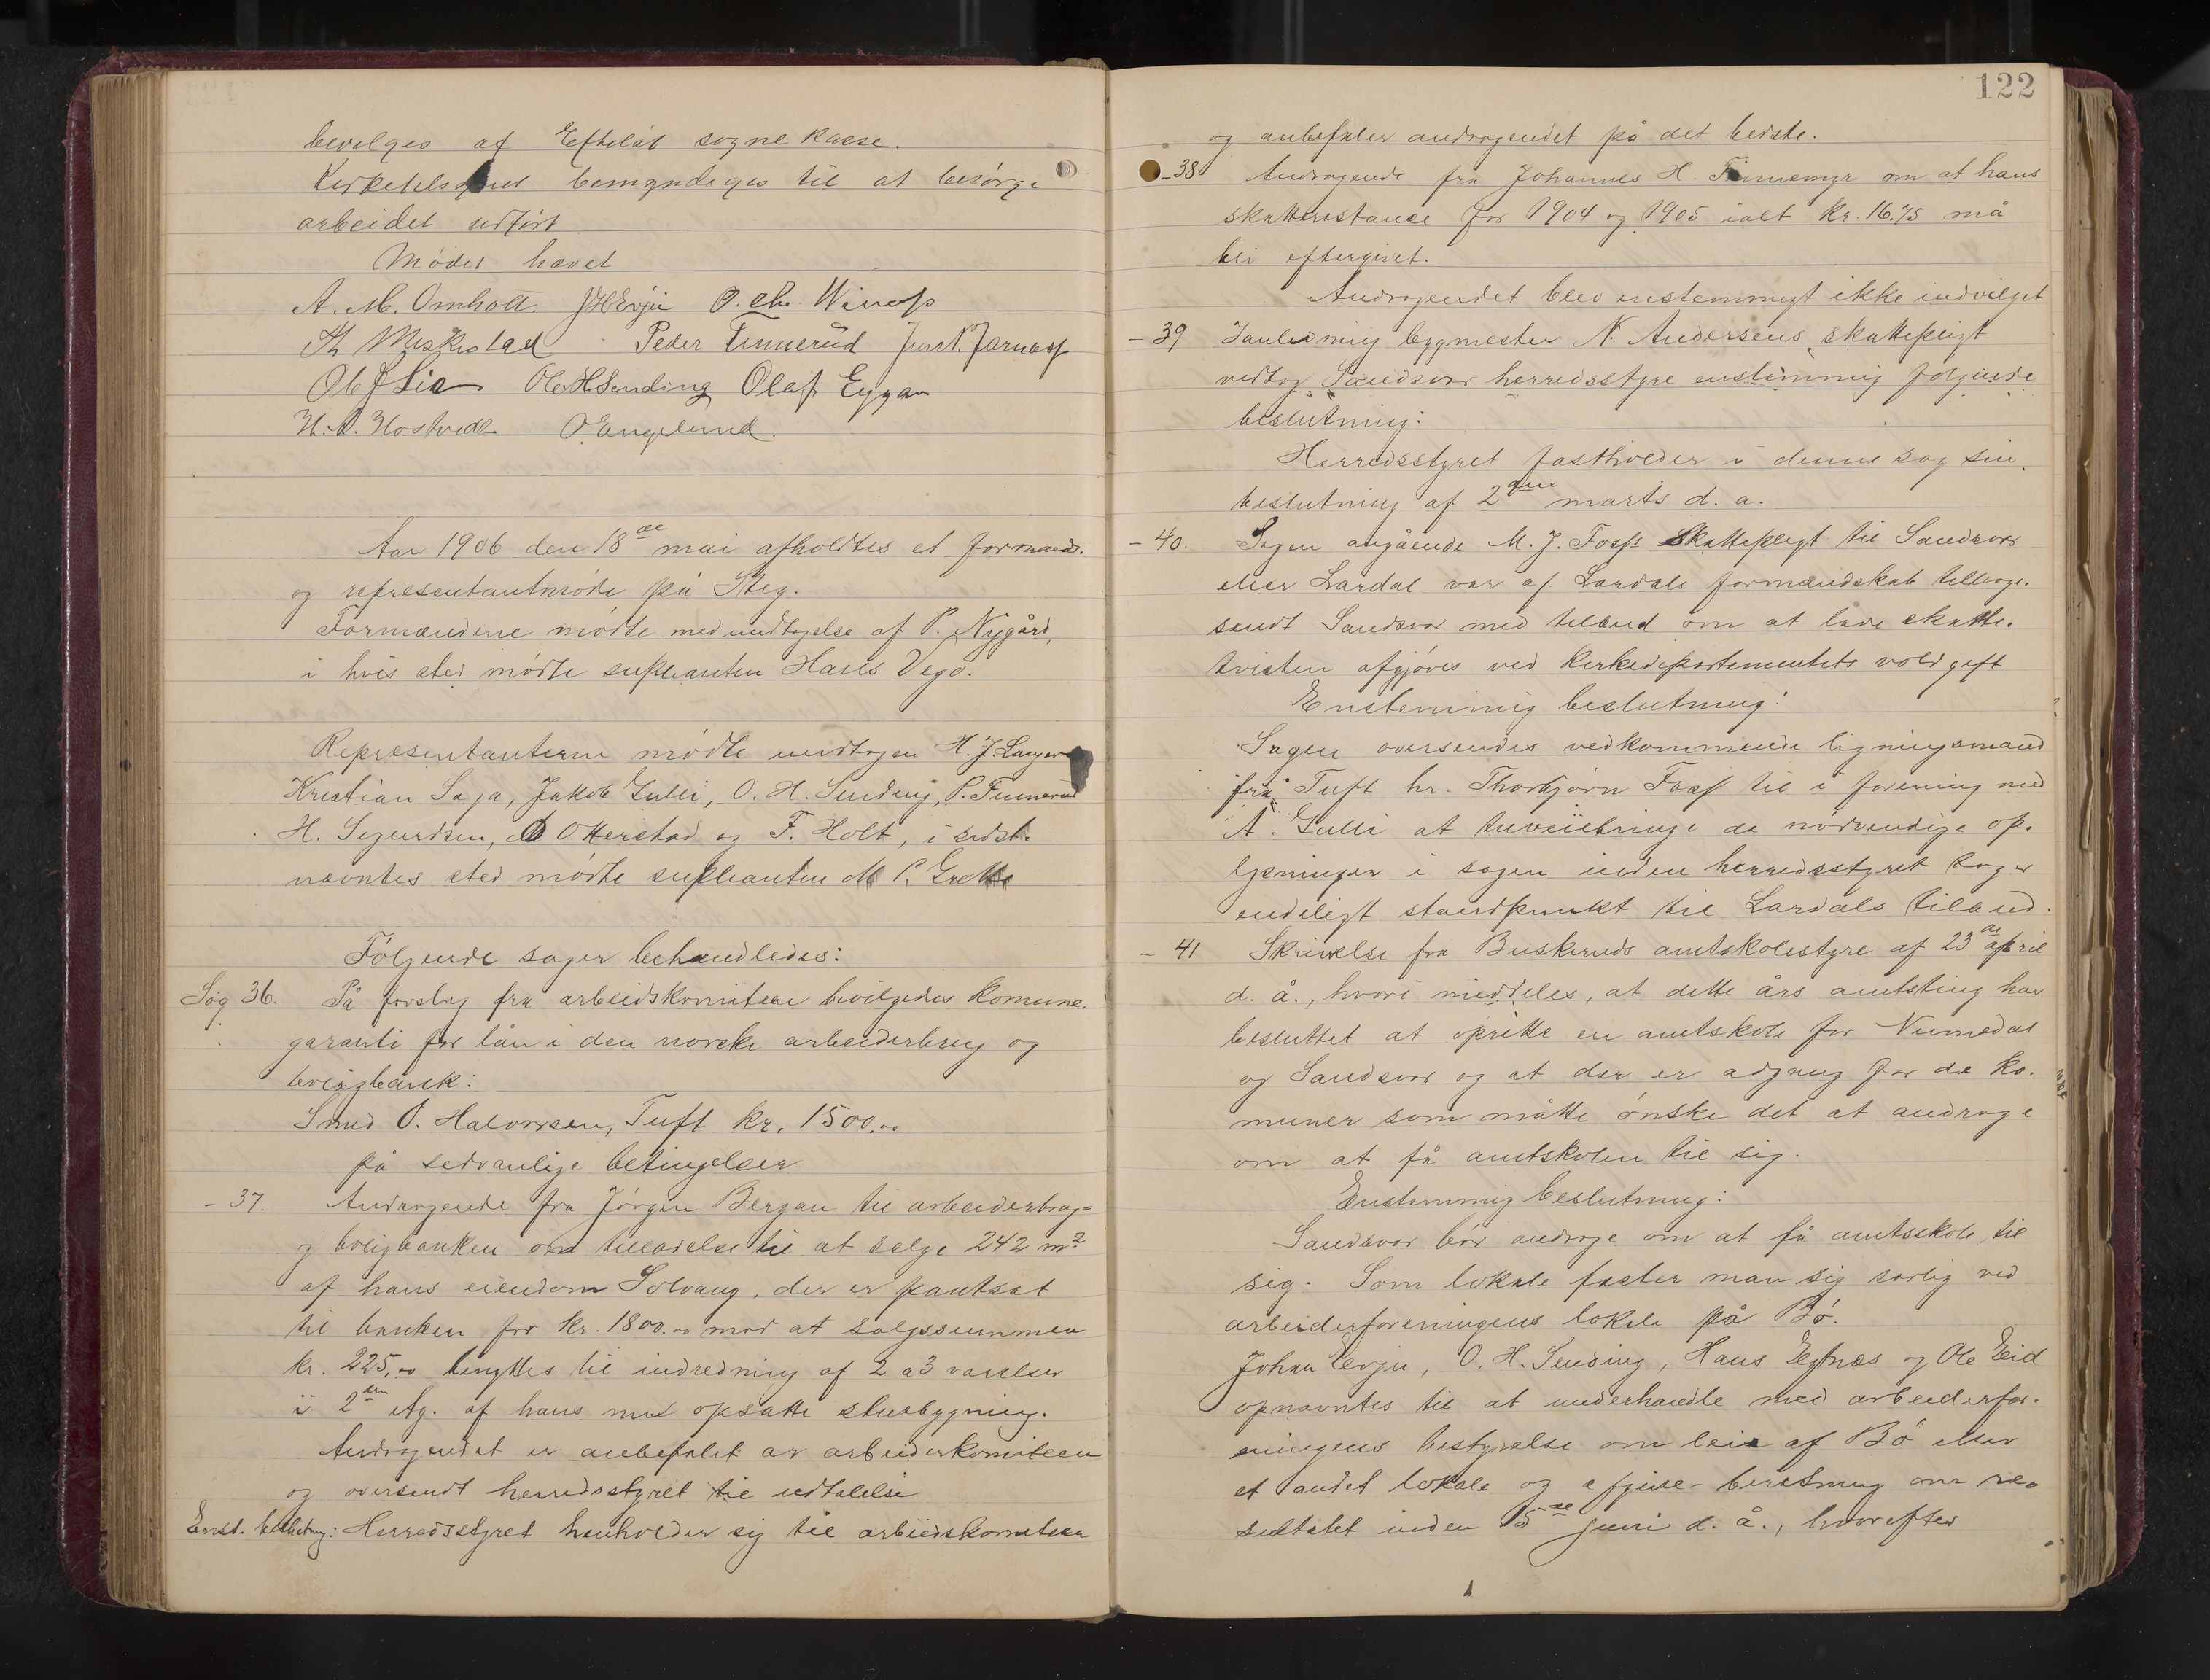 bevilges af Efteløt sognekasse.
Kirketilsynet bemyndiges til at besørge
arbeidet udført
Mødet hævet
A. M. Omholt. J H Evju O. Chr.
Th Meskestad Peder Finnerud
Ole J Lia Ole H Sending Olaf Eggar
H. O. Hostvedt O Engelund.
Aar 1906 den 18de mai afholdtes et formands-
og representantmøde på Steg.
Formændene mødte med undtagelse af P. Nygård,
i hvis sted mødte supleanten Hans Vego.
Representanterne mødte undtagen H. J.
Kristian Saga, Jakob Gulli, O. H. Sending, P. Finnerud
H. Sigurdsen, Otterstad og F. Holt, i sidst-
nævntes sted mødte supleanten M P.
Følgende sager behandledes:
Sag 36. På forslag fra arbeidskomiteen bevilgedes komune-
garanti for lån i den norske arbeiderbrug og
boligbank:
Smed O. Halvorsen, Tuft kr. 1500.00
på sedvanlige betingelser
- 37. Andragende fra Jørgen Bergan til arbeiderbrug-
og boligbanken om tilladelse til at selge 242 m2
af hans eiendom Solvang, der er pantsat
til banken for kr. 1800.00 mod at salgssummen
kr. 225.00 benyttes til indredning af 2 a 3 værelser
i 2den etg. af hans nu opsatte stuebygning.
Andragendet er anbefalet av arbeiderkomiteen
og oversendt herredsstyret til udtalelse
Enst. beslutng: Herredsstyret henholder sig til arbeidskomiteen
122
og anbefaler andragendet på det bedste.
- 38 Andragende fra Johannes H. Finnemyr om at hans
skatterestance for 1904 og 1905 ialt kr. 16.75 må
bli eftergivet.
Andragendet blev enstemmigt ikke indvilget
- 39 I anledning bygmester N. Andersens skattepligt
vedtog Sandsvær herredsstyre enstemmig følgende
beslutning:
Herredsstyret fastholder i denne sag sin
beslutning af 2den marts d. a.
- 40. Sagen angående M. J. Foss's skattepligt til Sandsvær
eller Lardal var af Lardals formandskab tilbage-
sendt Sandsvær med tilbud om at lade skatte-
tvisten afgjøres ved kirkedepartementets voldgift
Enstemmig beslutning:
Sagen oversendes vedkommende ligningsmand
fra Tuft hr. Thorbjørn Foss til i forening med
A. Gulli at tilveiebringe de nødvendige op-
lysninger i sagen inden herredsstyret tager
endeligt standpunkt til Lardals tilbud.
- 41 Skrivelse fra Buskeruds amtskolestyre af 23de april
d. å., hvori meddeles, at dette års amtsting har
besluttet at oprette en amtskole for Numedal
og Sandsvær og at der er adgang for de ko-
muner som måtte ønske det at andrage
om at få amtskolen til sig.
Enstemmig beslutning:
Sandsvær bør andrage om at få amtsskole til
sig. Som lokale fæster man sig særlig ved
arbeiderforeningens lokale på Bø.
Johan Evju, O. H. Sending, Hans Egtnæs og Ole Eid
opnævntes til at underhandle med arbeiderfor-
eningens bestyrelse om leie af Bø eller
et andet lokale og afgive beretning om re-
sultatet inden 15de juni d. å., hvorefter